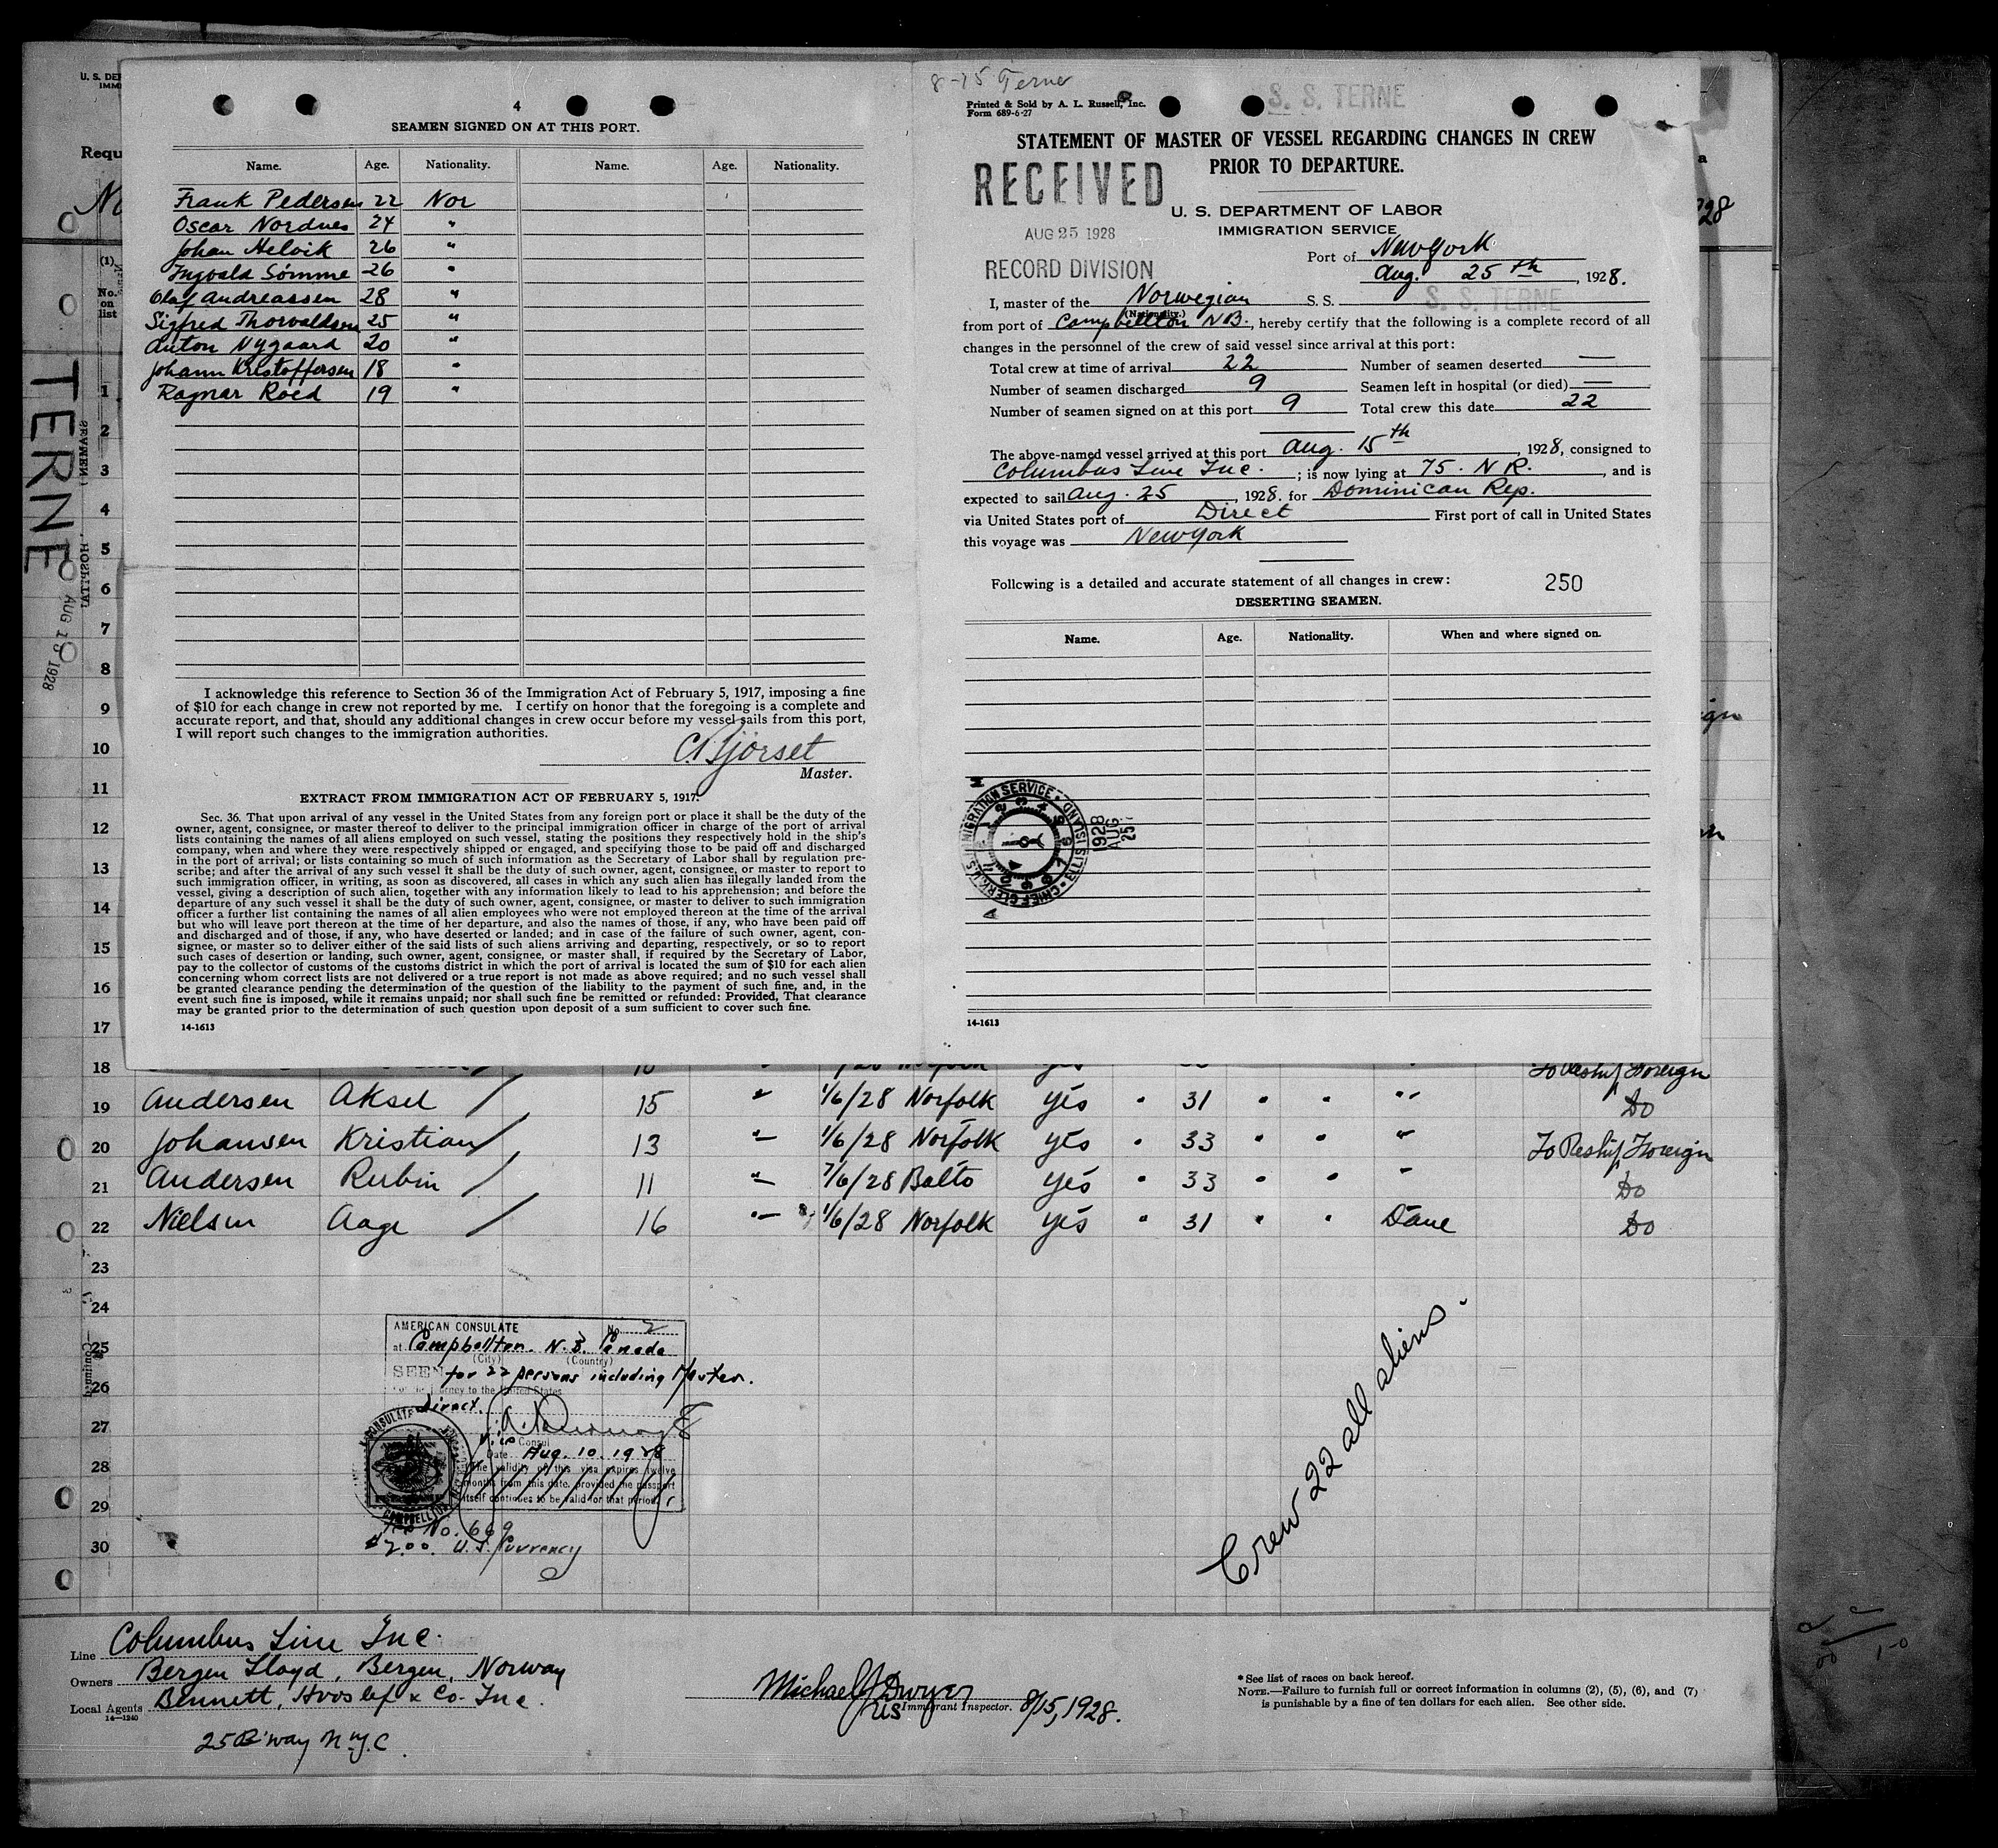 4
SEAMEN SIGNED ON AT THIS PORT.
Name. Age. Nationality. Name. Age. Nationality.
Frank Pedersen 22 Nor
Oscar Nordnes 24 "
Johan Helvik 26 "
Ingvald Sömme 26 "
Olaf Andreassen 28 "
Sigfred Thorvaldsen 25 "
Anton Nygaard 20 "
Johann Kristoffersen 18 "
Ragnar Roed 19 "
I acknowledge this reference to Section 36 of the Immigration Act of February 5, 1917, imposing a fine
of $10 for each change in crew not reported by me. I certify on honor that the foregoing is a complete and
accurate report, and that, should any additional changes in crew occur before my vessel sails from this port,
I will report such changes to the immigration authorities.
Gjörset
Master.
EXTRACT FROM IMMIGRATION ACT OF FEBRUARY 5, 1917.
Sec. 36. That upon arrival of any vessel in the United States from any foreign port or place it shall be the duty of the
owner, agent, consignee, or master thereof to deliver to the principal immigration officer in charge of the port of arrival
lists containing the names of all aliens employed on such vessel, stating the positions they respectively hold in the ship's
company, when and where they were respectively shipped or engaged, and specifying those to be paid off and discharged
in the port of arrival; or lists containing so much of such information as the Secretary of Labor shall by regulation pre-
scribe; and after the arrival of any such vessel it shall be the duty of such owner, agent, consignee, or master to report to
such immigration officer, in writing, as soon as discovered, all cases in which any such alien has illegally landed from the
vessel, giving a description of such alien, together with any information likely to lead to his apprehension; and before the
departure of any such vessel it shall be the duty of such owner, agent, consignee, or master to deliver to such immigration
officer a further list containing the names of all alien employees who were not employed thereon at the time of the arrival
but who will leave port thereon at the time of her departure, and also the names of those, if any, who have been paid off
and discharged and of those, if any, who have deserted or landed; and in case of the failure of such owner, agent, con-
signee, or master so to deliver either of the said lists of such aliens arriving and departing, respectively, or so to report
such cases of desertion or landing, such owner, agent, consignee, or master shall, if required by the Secretary of Labor,
pay to the collector of customs of the customs district in which the port of arrival is located the sum of $10 for each alien
concerning whom correct lists are not delivered or a true report is not made as above required; and no such vessel shall
be granted clearance pending the determination of the question of the liability to the payment of such fine, and, in the
event such fine is imposed, while it remains unpaid; nor shall such fine be remitted or refunded: Provided, That clearance
may be granted prior to the determination of such question upon deposit of a sum sufficient to cover such fine.
14-1613
8-25 Terne
Printed & Sold by A. L. Russell, Inc.
Form 689-6-27
S. S. TERNE
STATEMENT OF MASTER OF VESSEL REGARDING CHANGES IN CREW
PRIOR TO DEPARTURE.
RECEIVED
AUG 25 1928
RECORD DIVISION
U. S. DEPARTMENT OF LABOR
IMMIGRATION SERVICE
Port of New York
Aug. 25th, 1928.
I, master of the Norwegian S. S. S. S. TERNE
(Nationality.)
from port of Campbellton N.B., hereby certify that the following is a complete record of all
changes in the personnel of the crew of said vessel since arrival at this port:
Total crew at time of arrival 22 Number of seamen deserted —
Number of seamen discharged 9 Seamen left in hospital (or died) —
Number of seamen signed on at this port 9 Total crew this date 22
The above-named vessel arrived at this port Aug. 15th, 1928, consigned to
Columbus Line Inc.; is now lying at 75. N R., and is
expected to sail Aug. 25, 1928. for Dominican Rep.
via United States port of Direct First port of call in United States
this voyage was New York
Following is a detailed and accurate statement of all changes in crew: 250
DESERTING SEAMEN.
Name. Age. Nationality. When and where signed on.
IMMIGRATION SERVICE · ELLIS ISLAND · CHIEF CLERK
1928 AUG 25
14-1613
U. S. DEP
IMMI
Requ
No
(1)
No. on list
TERNE
AUG 15 1928
1
2
3
4
5
6
7
8
9
10
11
12
13
14
15
16
17
18 To Reship Foreign
19 Andersen Aksel 15 " 1/6/28 Norfolk yes " 31 " " " Do
20 Johansen Kristian 13 " 1/6/28 Norfolk yes " 33 " " " To Reship Foreign
21 Andersen Rubin 11 " 7/6/28 Balto yes " 33 " " " Do
22 Nielsen Aage 16 " 1/6/28 Norfolk yes " 31 " " Dane Do
23
24
25
26
27
28
29
30
AMERICAN CONSULATE No. 2
at Campbellton. N.B. Canada
(City) (Country)
SEEN for 22 persons including Master.
For the journey to the United States
direct.
Vice Consul
Date Aug. 10. 1928
The validity of this visa expires twelve
months from this date, provided the passport
itself continues to be valid for that period.
No. 669
$2.00. U.S. Currency
Crew 22 all aliens.
Line Columbus Line Inc.
Owners Bergen Lloyd, Bergen, Norway
Local Agents Bennett, Hvoslef & Co. Inc.
14—1240
25 B'way N.Y.C.
Michael J Dwyer
US Immigrant Inspector. 8/15, 1928.
* See list of races on back hereof.
NOTE.—Failure to furnish full or correct information in columns (2), (5), (6), and (7)
is punishable by a fine of ten dollars for each alien. See other side.